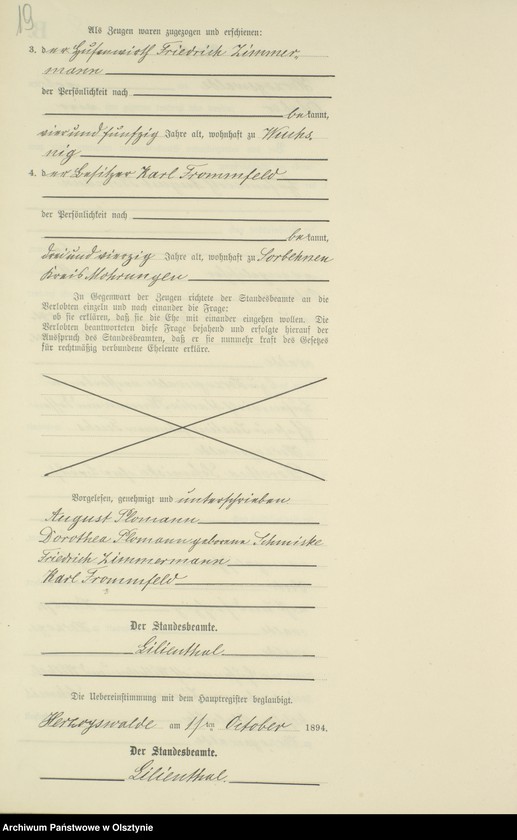 19
Als Zeugen waren zugezogen und erschienen:
3. der Hufenwirth Friedrich Zimmer-
mann
der Persönlichkeit nach
bekannt,
vierundfünfzig Jahre alt, wohnhaft zu Wuchs
nig
4. der Besitzer Karl Trommfeld
der Persönlichkeit nach
bekannt,
dreiundvierzig Jahre alt, wohnhaft zu Sorbehnen
Kreis Mohrungen
In Gegenwart der Zeugen richtete der Standesbeamte an die
Verlobten einzeln und nach einander die Frage:
ob sie erklären, daß sie die Ehe mit einander eingehen wollen. Die
Verlobten beantworteten diese Frage bejahend und erfolgte hierauf der
Ausspruch des Standesbeamten, daß er sie nunmehr kraft des Gesetzes
für rechtmäßig verbundene Eheleute erkläre.
Vorgelesen, genehmigt und unterschrieben
August Plomann
Dorothea Plomann geborene Schmiske
Friedrich Zimmermann
Karl Trommfeld
Der Standesbeamte.
Lilienthal
Die Uebereinstimmung mit dem Hauptregister beglaubigt.
Herzogswalde am October 1894.
Der Standesbeamte.
Lilienthal.
Archiwum Państwowe w Olsztynie